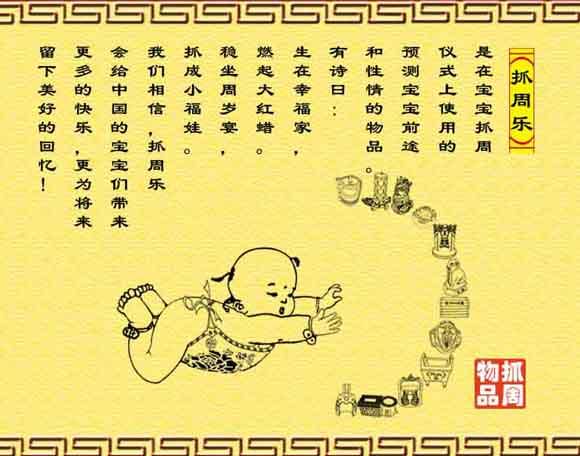 抓周乐
是在宝宝抓周
仪式上使用的
预测宝宝前途
和性情的物品。
有诗曰：
生在幸福家，
燃起大红蜡。
稳坐周岁宴，
抓成小福娃。
我们相信，抓周乐
会给中国的宝宝们带来
更多的快乐，更为将来
留下美好的回忆！
抓周
物品